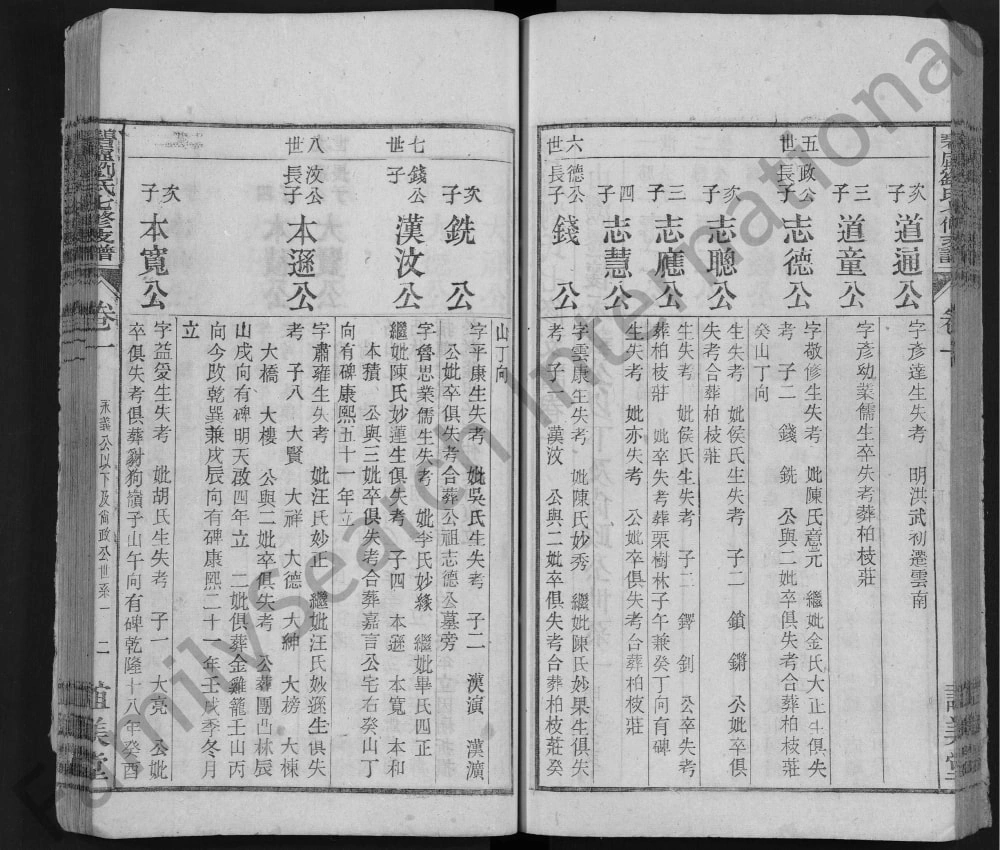 次子 道通公 字彥達生失考 明洪武初遷雲南
三子 道童公 字彥幼業儒生卒失考葬柏枝莊
五世
政公長子 志德公 字敬修生失考 妣陳氏意元 繼妣金氏大正生俱失
考 子二 錢 銑 公與二妣卒俱失考合葬柏枝莊
癸山丁向
次子 志聰公 生失考 妣侯氏生失考 子二 鎖 鏘 公妣卒俱
失考合葬柏枝莊
三子 志應公 生失考 妣侯氏生失考 子二 鐸 釗 公卒失考
葬柏枝莊 妣卒失考葬栗樹林子午兼癸丁向有碑
四子 志慧公 生失考 妣亦失考 公妣卒俱失考合葬柏枝莊
六世
德公長子 錢公 字雲康生失考 妣陳氏妙秀 繼妣陳氏妙果生俱失
考 子一 漢汶 公與二妣卒俱失考合葬柏枝莊癸
山丁向
次子 銑公 字平康生失考 妣吳氏生失考 子二 漢演 漢瀇
公妣卒俱失考合葬公祖志德公墓旁
七世
錢公子 漢汶公 字魯思業儒生失考 妣李氏妙緣 繼妣畢氏四正
繼妣陳氏妙蓮生俱失考 子四 本遜 本寬 本和
本積 公與三妣卒俱失考合葬嘉言公宅右癸山丁
向有碑康熙五十一年立
八世
汶公長子 本遜公 字肅雍生失考 妣汪氏妙正 繼妣汪氏妙遜生俱失
考 子八 大賢 大祥 大德 大紳 大榜 大棟
大橋 大樓 公與二妣卒俱失考 公葬團凸林辰
山戌向有碑明天啟四年立 二妣俱葬金雞籠壬山丙
向今改乾巽兼戌辰向有碑康熙二十一年壬戌季冬月
立
次子 本寬公 字益爰生失考 妣胡氏生失考 子一 大亮 公妣
卒俱失考俱葬豺狗嶺子山午向有碑乾隆十八年癸酉
劉氏七修支譜 卷一 永義公以下及尙政公世系一 二
FamilySearch International